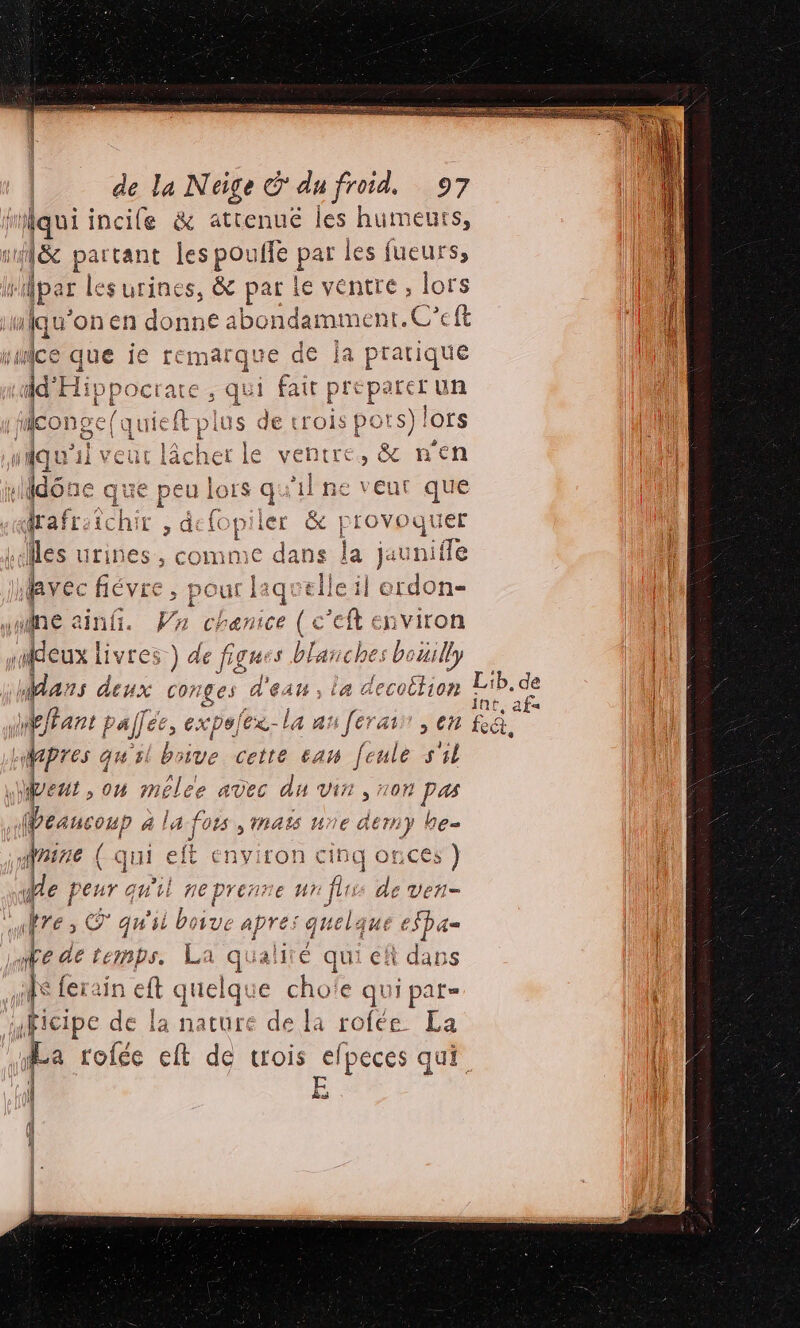 de la Neige & du froid. 97
qui incise & attenuë les humeurs,
& partant les pousse par les sueurs,
par les urines, & par le ventre, lors
qu'on en donne abondamment. C'est
ce que ie remarque de la pratique
d'Hippocrate, qui fait preparer un
conge (qui est plus de trois pots) lors
qu'il veut lâcher le ventre, & n'en
dône que peu lors qu'il ne veut que
rafraîchir, desopiler & provoquer
les urines, comme dans la jaunisse
avec fiévre, pour laquelle il ordon-
ne ainsi. Vn chenice (c'est environ
deux livres) de figues blanches boüilly
dans deux conges d'eau, la decoction
estant passée, exposez-la au serain, en
apres qu'il boive cette eau seule s'il
veut, ou mêlée avec du vin, non pas
beaucoup à la fois, mais une demy he-
mine (qui est environ cinq onces)
de peur qu'il ne prenne un flus de ven-
tre, & qu'il boive apres quelque espa-
ce de temps. La qualité qui est dans
le serain est quelque chose qui par-
ticipe de la nature de la rosée. La
La rosée est de trois especes qui
E
Lib. de
int. af-
fect.